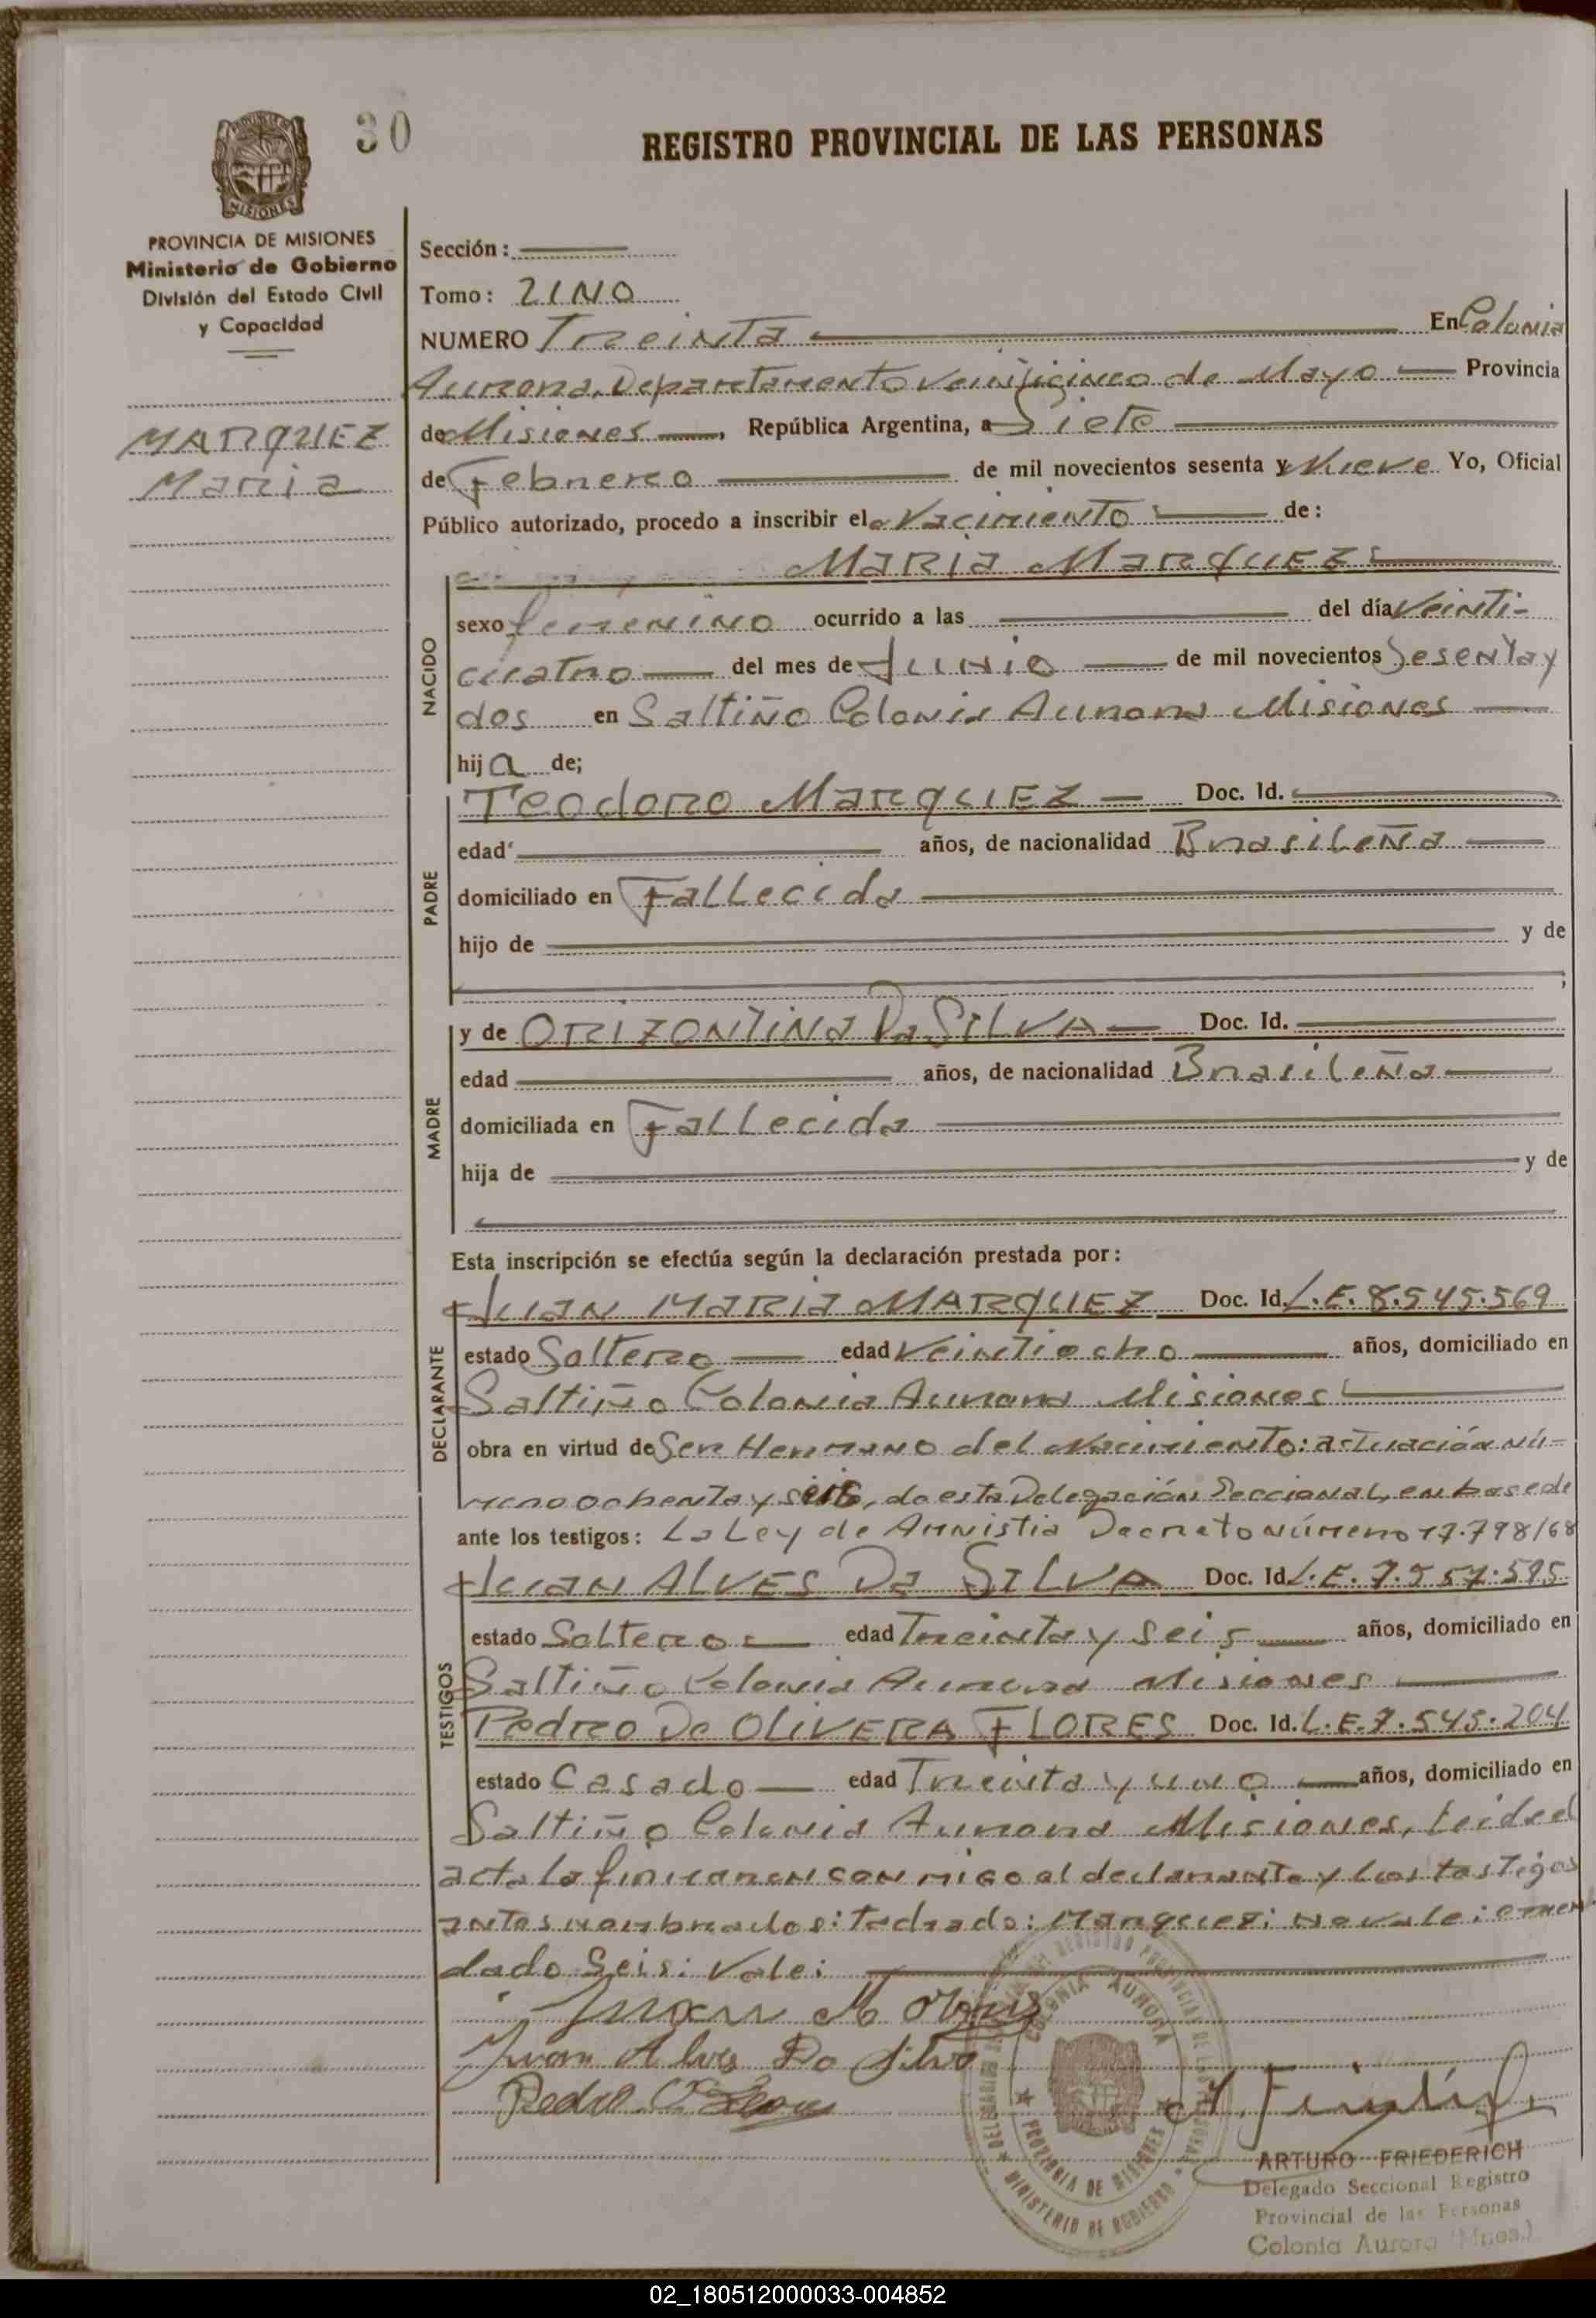 30
REGISTRO PROVINCIAL DE LAS PERSONAS
MISIONES
PROVINCIA DE MISIONES
Ministerio de Gobierno
División del Estado Civil
y Capacidad
MARQUEZ
Maria
Sección:
Tomo: UNO
NUMERO Treinta En Colonia
Aurora, Departamento Veinticinco de Mayo Provincia
de Misiones, República Argentina, a Siete
de Febrero de mil novecientos sesenta y Nueve Yo, Oficial
Público autorizado, procedo a inscribir el Nacimiento de:
MARIA MARQUEZ
NACIDO
sexo femenino ocurrido a las del día Veinti-
cuatro del mes de Junio de mil novecientos Sesenta y
dos en Saltiño Colonia Aurora Misiones
hij a de;
PADRE
Teodoro MARQUEZ Doc. Id.
edad años, de nacionalidad Brasileña
domiciliado en Fallecido
hijo de y de
MADRE
y de ORIZONTINA Da SILVA Doc. Id.
edad años, de nacionalidad Brasileña
domiciliada en Fallecida
hija de y de
Esta inscripción se efectúa según la declaración prestada por:
DECLARANTE
JUAN MARIA MARQUEZ Doc. Id. L.E. 8.545.569
estado Soltero edad Veintiocho años, domiciliado en
Saltiño Colonia Aurora Misiones
obra en virtud de Ser Hermano del Nacimiento: actuación nú-
mero ochenta y seis, de esta Delegación Seccional, en base de
ante los testigos: La Ley de Amnistia Decreto Número 17.798/68
TESTIGOS
JUAN ALVES Da SILVA Doc. Id. L.E. 7.557.595
estado Soltero edad Treinta y Seis años, domiciliado en
Saltiño Colonia Aurora Misiones
Pedro De OLIVERA FLORES Doc. Id. L.E. 7.545.204
estado Casado edad Treinta y uno años, domiciliado en
Saltiño Colonia Aurora Misiones, leida el
acta la firmaron conmigo el declarante y los testigos
antes nombrados: Tachado: Marquez: no vale: enmen
dado Seis: Vale:
Juan M
Juan Alves Da Silva
Pedro
COLONIA AURORA
PROVINCIA DE MISIONES
MINISTERIO DE GOBIERNO
ARTURO FRIEDERICH
Delegado Seccional Registro
Provincial de las Personas
Colonia Aurora (Mnes.)
02_180512000033-004852